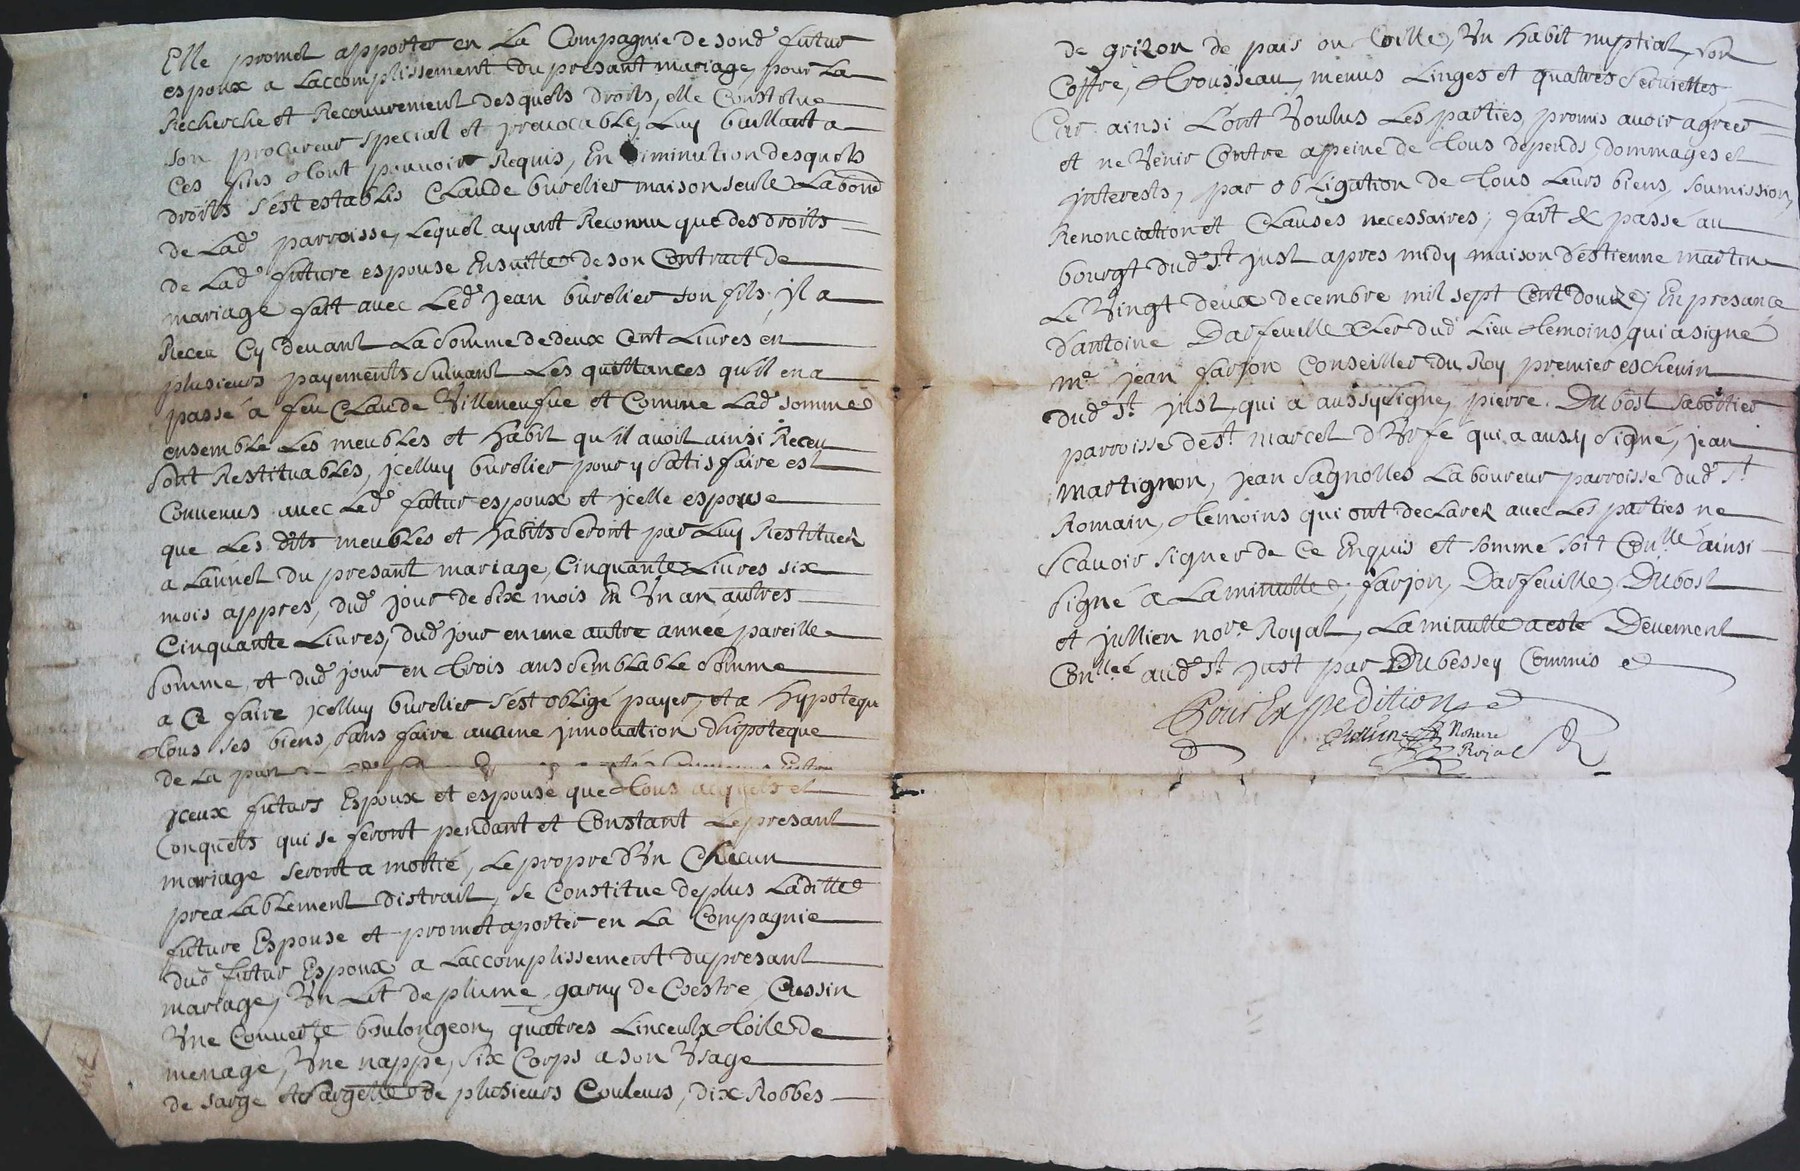 Elle promet apporter en La Compagnie de sond.^e futur
espoux a Laccomplissement du presant mariage, pour La
Recherche et Recouvrement desquels droits, elle Constitue
son procureur special et jrrevocable, Luy baillant a
Ces fins tout pouvoir Requis, En diminution desquels
droits s'est establis Claude burelier maison seule La bone
de Lad.^e parroisse, Lequel ayant Reconnu que des droits
de Lad.^e future espouse Ensuitte de son Contrait de
mariage fait avec Led.^e jean burelier son fils, jl a
Receu Cy devant La somme de deux Cent Livres en
plusieurs payements suivant Les quittances qu'il en a
passé a feu Claude Villeneufve et Comme Lad.^e somme
ensemble Les meubles et habit qu'il avoit ainsi Receu
sont Restituables, jcelluy burelier pour y satisfaire est
Convenus avec Led.^e futur espoux et jcelle espouse
que Les dits meubles et habits seront par Luy Restitués
a L'annel du presant mariage, Cinquante Livres six
mois appres, dud.^e jour de six mois En Un an autres
Cinquante Livres, dud.^e jour en une autre année pareille
somme, et dud.^e jour en trois ans semblable somme
a Ce faire jcelluy burelier s'est obligé payer, et a hypotequ
tous ses biens, sans faire aucune jnnovation d'hipoteque
de La part
jceux futurs Espoux et espouse que tous acquets et
Conquets qui se feront pendant et Constant Le presant
mariage seront a moitié, Le propre d'Un Checun
prealablement distrait, se Constitue de plus Laditte
future Espouse et promet aporter en La Compagnie
dud.^e futur Espoux a Laccomplissement du presant
mariage, Un Lit de plume, garny de Coestre, Cussin
Une Couverte boulongeon, quatres Linceulx toile de
menage, Une nappe, six Corps a son Usage
de sarge et sargette de plusieurs Couleurs, dix Robbes
de grizon de pais ou toille, Un habit nuptial, son
Coffre, trousseau, menus Linges et quatres serviettes
Car ainsi L'ont Voulus Les parties, promis avoir agreer
et ne Venir Contre a peine de tous depends, dommages et
jnterests, par obligation de tous Leurs biens, soumission,
Renonciation et Clauses necessaires, fait & passé au
bourgt dud.^e S.^t just apres midy maison d'estienne martin
Le Vingt deux decembre mil sept Cent douze, En presance
d'antoine Darfeuille Cler dud.^e Lieu temoins qui a signé
M.^e jean farjon Conseiller du Roy premier eschevin
dud.^e S.^t just, qui a aussy signe, pierre Dubost sabottier
parroisse de S.^t marcel d'Urfé qui a aussy signé, jean
martignon, jean sagnolles Laboureur parroisse dud.^e S.^t
Romain, temoins qui ont declarer avec Les parties ne
scavoir signer de Ce Enquis et sommé soit Con.^llé ainsi
signé a La minutte, farjon, Darfeuille, Dubost
et jullien no.^re Royal, La minutte a esté Deuement
Con.^llée aud.^e S.^t just par Dubessey Commis
Pour Expedition
Jullien Notaire
Royal